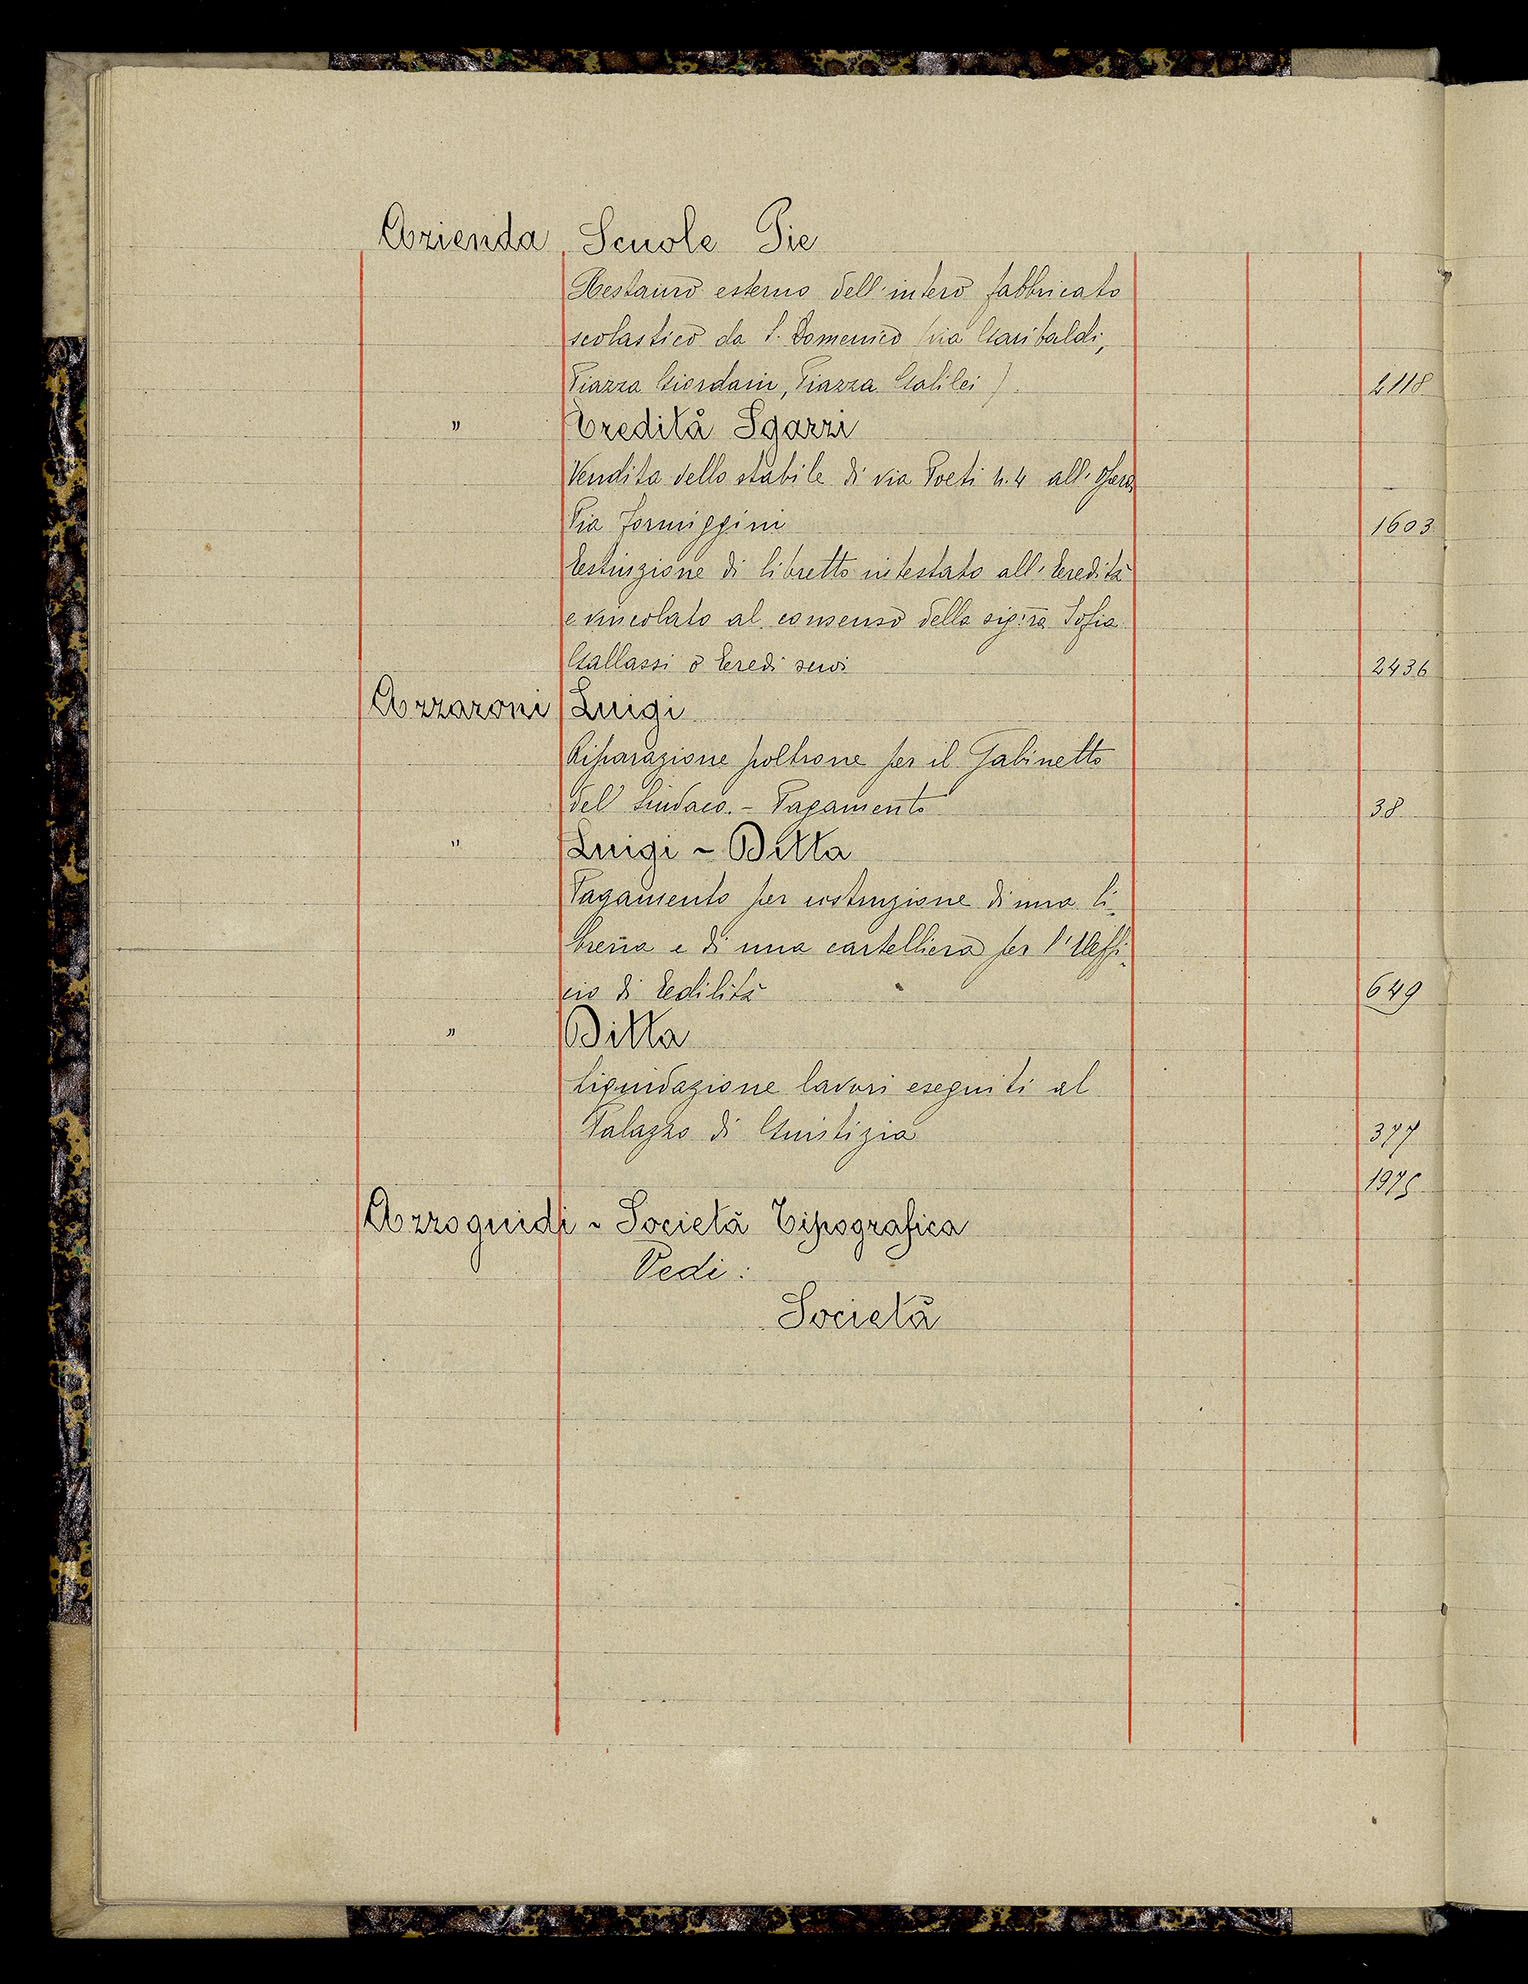 Azienda Scuole Pie
Restauro esterno dell'intero fabbricato
scolastico da S. Domenico (via Garibaldi,
Piazza Giordani, Piazza Galilei) 2118
" Eredità Sgarzi
Vendita dello stabile di via Poeti n. 4 all'Opera
Pia Formiggini 1603
Estinzione di libretto intestato all'Eredità
e vincolato al consenso della sig.ra Sofia
Gallassi o Eredi suoi 2436
Azzaroni Luigi
Riparazione poltrone per il Gabinetto
del Sindaco. - Pagamento 38
" Luigi - Ditta
Pagamento per costruzione di una li-
breria e di una cartelliera per l'Uffi-
cio di Edilità 649
" Ditta
Liquidazione lavori eseguiti al
Palazzo di Giustizia 377
1975
Azzoguidi - Società Tipografica
Vedi:
Società